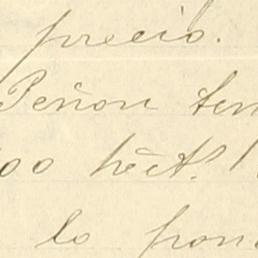 precio.
Peñon ten
00 hect.
lo pon